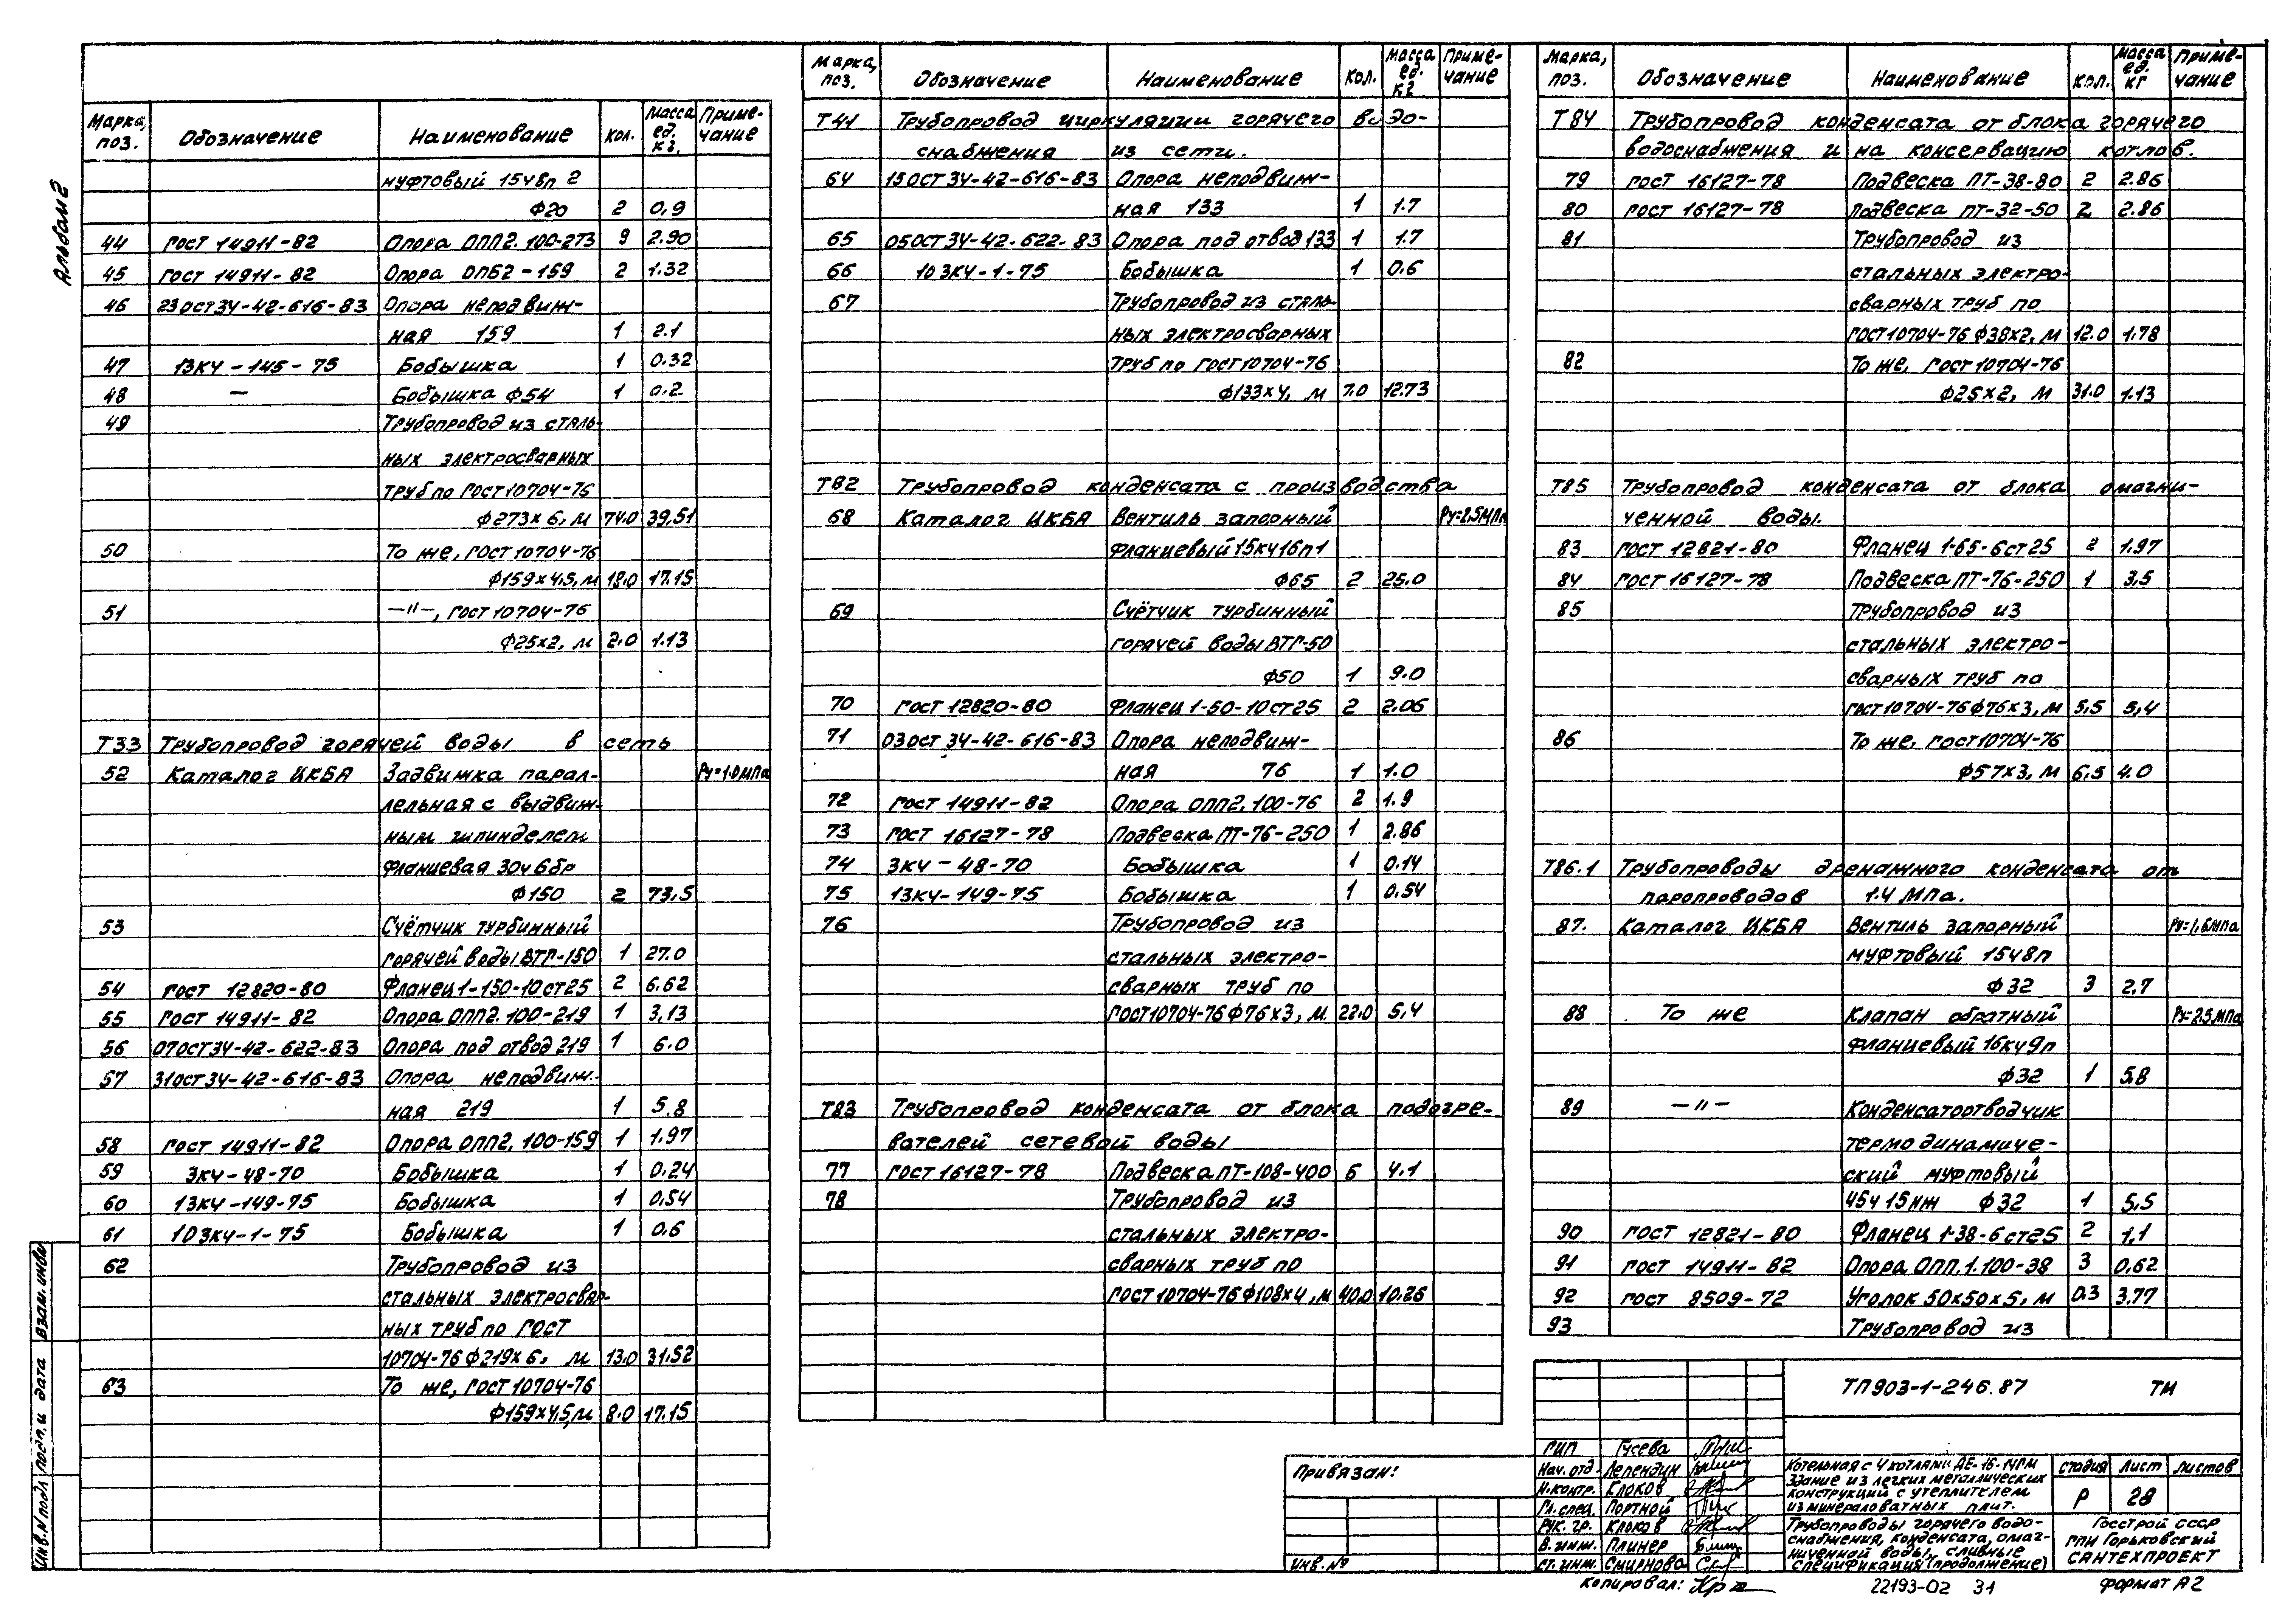 Альбом 2
Марка, поз. Обозначение Наименование Кол. Масса ед. кг. Приме-чание
муфтовый 15ч8п 2
Ф20 2 0,9
44 ГОСТ 14911-82 Опора ОПП2.100-273 9 2.90
45 ГОСТ 14911-82 Опора ОПБ2-159 2 1.32
46 23 ОСТ 34-42-616-83 Опора неподвиж-
ная 159 1 2.1
47 13К4-145-75 Бобышка 1 0.32
48 — Бобышка Ф54 1 0.2
49 Трубопровод из сталь-
ных электросварных
труб по ГОСТ 10704-76
Ф273х6, м 74.0 39,51
50 То же, ГОСТ 10704-76
Ф159х4,5, м 18.0 17.15
51 —"—, ГОСТ 10704-76
Ф25х2, м 2.0 1.13
Т33 Трубопровод горячей воды в сеть
52 Каталог ЦКБА Задвижка парал- Ру=1.0МПа
лельная с выдвиж-
ным шпинделем
фланцевая 30ч6бр
Ф150 2 73,5
53 Счётчик турбинный
горячей воды ВТГ-150 1 27.0
54 ГОСТ 12820-80 Фланец 1-150-10 ст25 2 6.62
55 ГОСТ 14911-82 Опора ОПП2.100-219 1 3,13
56 07 ОСТ 34-42-622-83 Опора под отвод 219 1 6.0
57 31 ОСТ 34-42-616-83 Опора неподвиж-
ная 219 1 5.8
58 ГОСТ 14911-82 Опора ОПП2,100-159 1 1.97
59 3К4-48-70 Бобышка 1 0.24
60 13К4-149-75 Бобышка 1 0,54
61 103К4-1-75 Бобышка 1 0.6
62 Трубопровод из
стальных электросвар-
ных труб по ГОСТ
10704-76 Ф219х6, м 13.0 31,52
63 То же, ГОСТ 10704-76
Ф159х4,5, м 8.0 17.15
Марка, поз. Обозначение Наименование Кол. Масса ед. кг Приме-чание
Т41 Трубопровод циркуляции горячего водо-
снабжения из сети.
64 15 ОСТ 34-42-616-83 Опора неподвиж-
ная 133 1 1.7
65 05 ОСТ 34-42-622-83 Опора под отвод 133 1 1.7
66 103К4-1-75 Бобышка 1 0.6
67 Трубопровод из сталь-
ных электросварных
труб по ГОСТ 10704-76
Ф133х4, м 7.0 12.73
Т82 Трубопровод конденсата с производства
68 Каталог ЦКБА Вентиль запорный Ру=2.5МПа
фланцевый 15кч16п1
Ф65 2 25.0
69 Счётчик турбинный
горячей воды ВТГ-50
Ф50 1 9.0
70 ГОСТ 12820-80 Фланец 1-50-10 ст25 2 2.06
71 03 ОСТ 34-42-616-83 Опора неподвиж-
ная 76 1 1.0
72 ГОСТ 14911-82 Опора ОПП2,100-76 2 1.9
73 ГОСТ 16127-78 Подвеска ПТ-76-250 1 2.86
74 3К4-48-70 Бобышка 1 0.14
75 13К4-149-75 Бобышка 1 0.54
76 Трубопровод из
стальных электро-
сварных труб по
ГОСТ 10704-76 Ф76х3, м 22.0 5,4
Т83 Трубопровод конденсата от блока подогре-
вателей сетевой воды
77 ГОСТ 16127-78 Подвеска ПТ-108-400 6 4.1
78 Трубопровод из
стальных электро-
сварных труб по
ГОСТ 10704-76 Ф108х4, м 40.0 10.26
Марка, поз. Обозначение Наименование Кол. Масса ед. кг Приме-чание
Т84 Трубопровод конденсата от блока горячего
водоснабжения и на консервацию котлов.
79 ГОСТ 16127-78 Подвеска ПТ-38-80 2 2.86
80 ГОСТ 16127-78 Подвеска ПТ-32-50 2 2.86
81 Трубопровод из
стальных электро-
сварных труб по
ГОСТ 10704-76 Ф38х2, м 12.0 1.78
82 То же, ГОСТ 10704-76
Ф25х2, м 31.0 1.13
Т85 Трубопровод конденсата от блока омагни-
ченной воды.
83 ГОСТ 12821-80 Фланец 1-65-6 ст25 2 1.97
84 ГОСТ 16127-78 Подвеска ПТ-76-250 1 3.5
85 Трубопровод из
стальных электро-
сварных труб по
ГОСТ 10704-76 Ф76х3, м 5,5 5,4
86 То же, ГОСТ 10704-76
Ф57х3, м 6,5 4.0
Т86.1 Трубопроводы дренажного конденсата от
паропроводов 1.4 МПа.
87. Каталог ЦКБА Вентиль запорный Ру=1,6МПа
муфтовый 15ч8п
Ф32 3 2.7
88 То же Клапан обратный Ру=2.5МПа
фланцевый 16кч9п
Ф32 1 5.8
89 —"— Конденсатоотводчик
термодинамиче-
ский муфтовый
45ч15нж Ф32 1 5,5
90 ГОСТ 12821-80 Фланец 1-38-6 ст25 2 1,1
91 ГОСТ 14911-82 Опора ОПП.1.100-38 3 0.62
92 ГОСТ 8509-72 Уголок 50х50х5, м 0.3 3.77
93 Трубопровод из
Инв.№подл Подп. и дата Взам. инв№
Привязан:
Инв.№
ТП 903-1-246.87 ТМ
ГИП Гусева
Нач. отд. Лепендин
Н.контр. Клоков
Гл. спец. Портной
Рук. гр. Клоков
В. инж. Плинер
Ст. инж. Смирнова
Котельная с 4 котлами ДЕ-16-14ГМ
Здание из легких металлических
конструкций с утеплителем
из минераловатных плит.
Стадия Лист Листов
Р 28
Трубопроводы горячего водо-
снабжения, конденсата, омаг-
ниченной воды, сливные
Спецификация (продолжение)
Госстрой СССР
ГПИ Горьковский
САНТЕХПРОЕКТ
Копировал:
22193-02 31
Формат А2